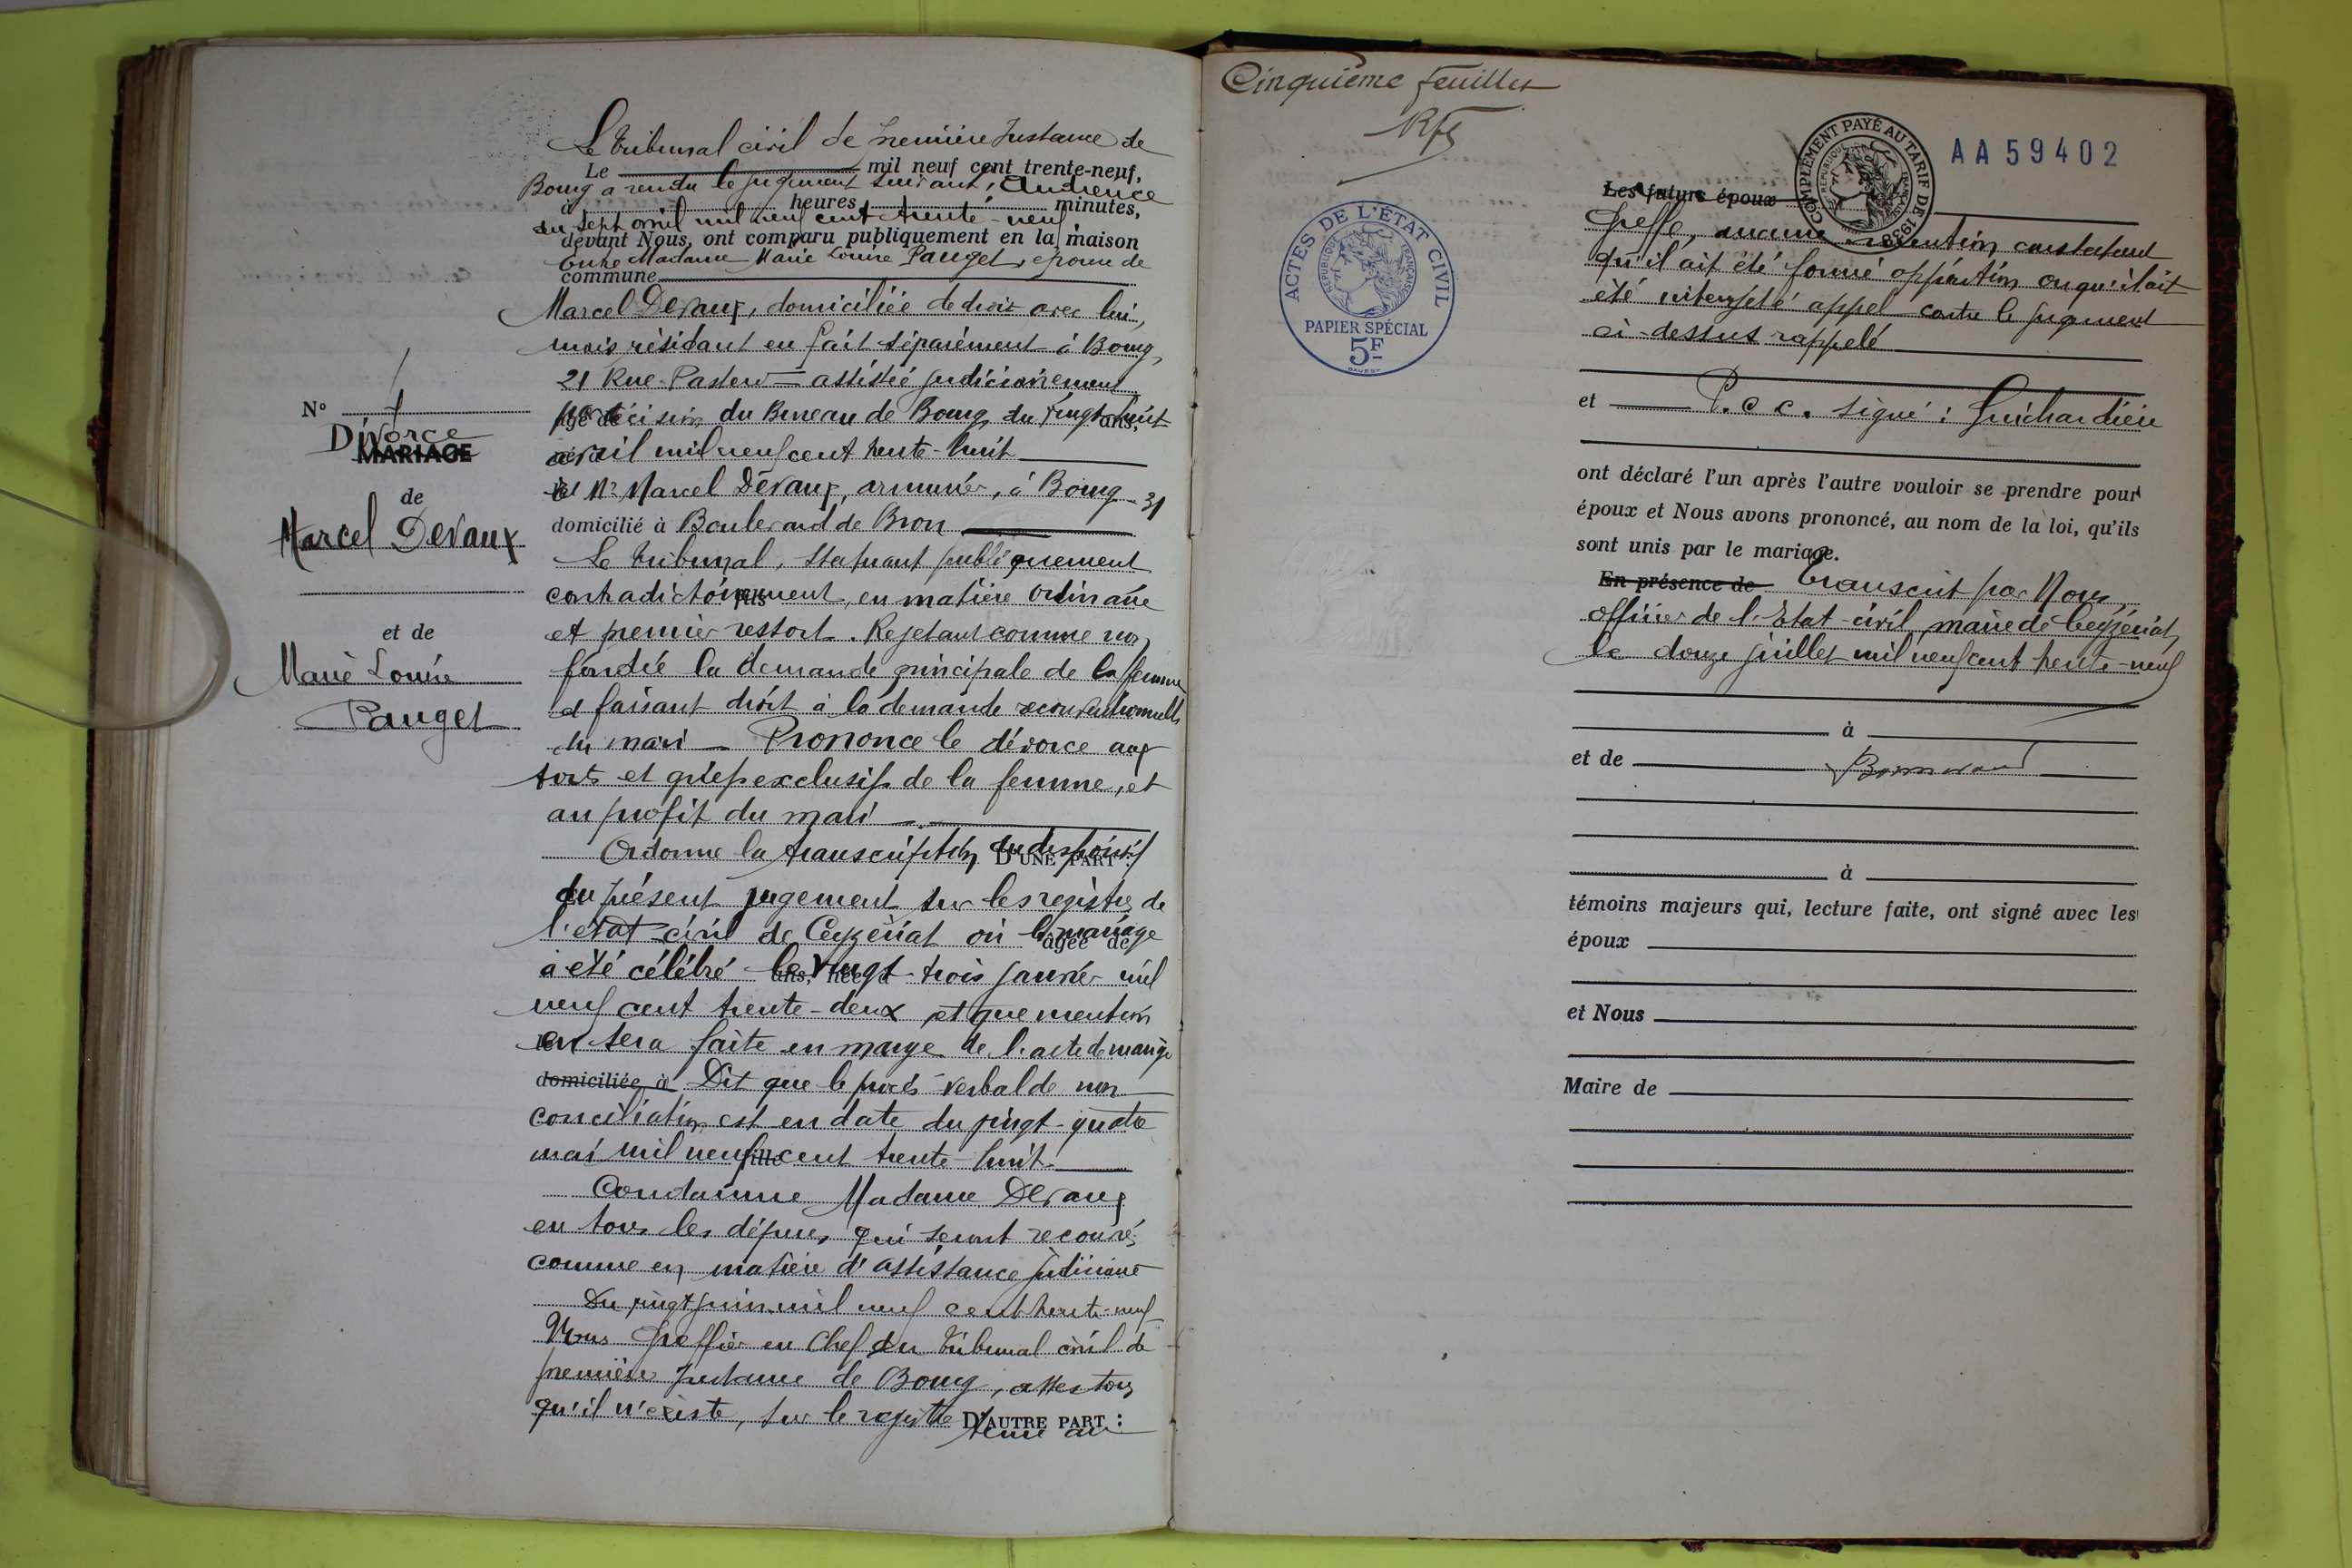 Le tribunal civil de première Instance de
Le mil neuf cent trente-neuf,
Bourg a rendu le jugement suivant, Audience
à heures minutes,
du sept avril mil neuf cent trente-neuf
devant Nous, ont comparu publiquement en la maison
Entre Madame Marie Louise Pauget, épouse de
commune
Marcel Devaux, domiciliée de droit avec lui,
mais résidant en fait séparément à Bourg,
21 Rue Pasteur assistée judiciairement
par décision du Bureau de Bourg du vingt-huit
avril mil neuf cent trente-huit
et Mr Marcel Devaux, armurier, à Bourg 31
domicilié à Boulevard de Brou
Le tribunal, statuant publiquement
contradictoirement, en matière ordinaire
et premier ressort. Rejetant comme non
fondée la demande principale de la femme
et faisant droit à la demande reconventionnelle
du mari Prononce le divorce aux
torts et griefs exclusifs de la femme, et
au profit du mari
Ordonne la transcription du dispositif
D'UNE PART :
du présent jugement sur les registres de
l'état-civil de Ceyzériat où le mariage
âgée de
a été célébré le vingt-trois janvier mil
ans, née à
neuf cent trente-deux et que mention
en sera faite en marge de l'acte de mariage
domiciliée à Dit que le procès-verbal de non
conciliation est en date du vingt-quatre
mai mil neuf cent trente-huit
fille
Condamne Madame Devaux
en tous les dépens, qui seront recouvrés
comme en matière d'assistance judiciaire
Du vingt juin mil neuf cent trente-neuf
Nous Greffier en Chef du tribunal civil de
première Instance de Bourg, attestons
qu'il n'existe, sur le registre tenu au
D'AUTRE PART :
N° 1
Divorce
MARIAGE
de
Marcel Devaux
et de
Marie Louise
Pauget
Cinquième feuillet
AA59402
COMPLÉMENT PAYÉ AU TARIF DE 1938
RÉPUBLIQUE FRANÇAISE
ACTES DE L'ÉTAT CIVIL
RÉPUBLIQUE FRANÇAISE
PAPIER SPÉCIAL
5F
Les futurs époux
Greffe, aucune mention constatant
qu'il ait été formé opposition ou qu'il ait
été interjeté appel contre le jugement
ci-dessus rappelé
et P.c c. signé : Guichardière
ont déclaré l'un après l'autre vouloir se prendre pour
époux et Nous avons prononcé, au nom de la loi, qu'ils
sont unis par le mariage.
En présence de Transcrit par Nous
officier de l'Etat-civil, maire de Ceyzériat,
le douze juillet mil neuf cent trente-neuf
à
et de
à
témoins majeurs qui, lecture faite, ont signé avec les
époux
et Nous
Maire de